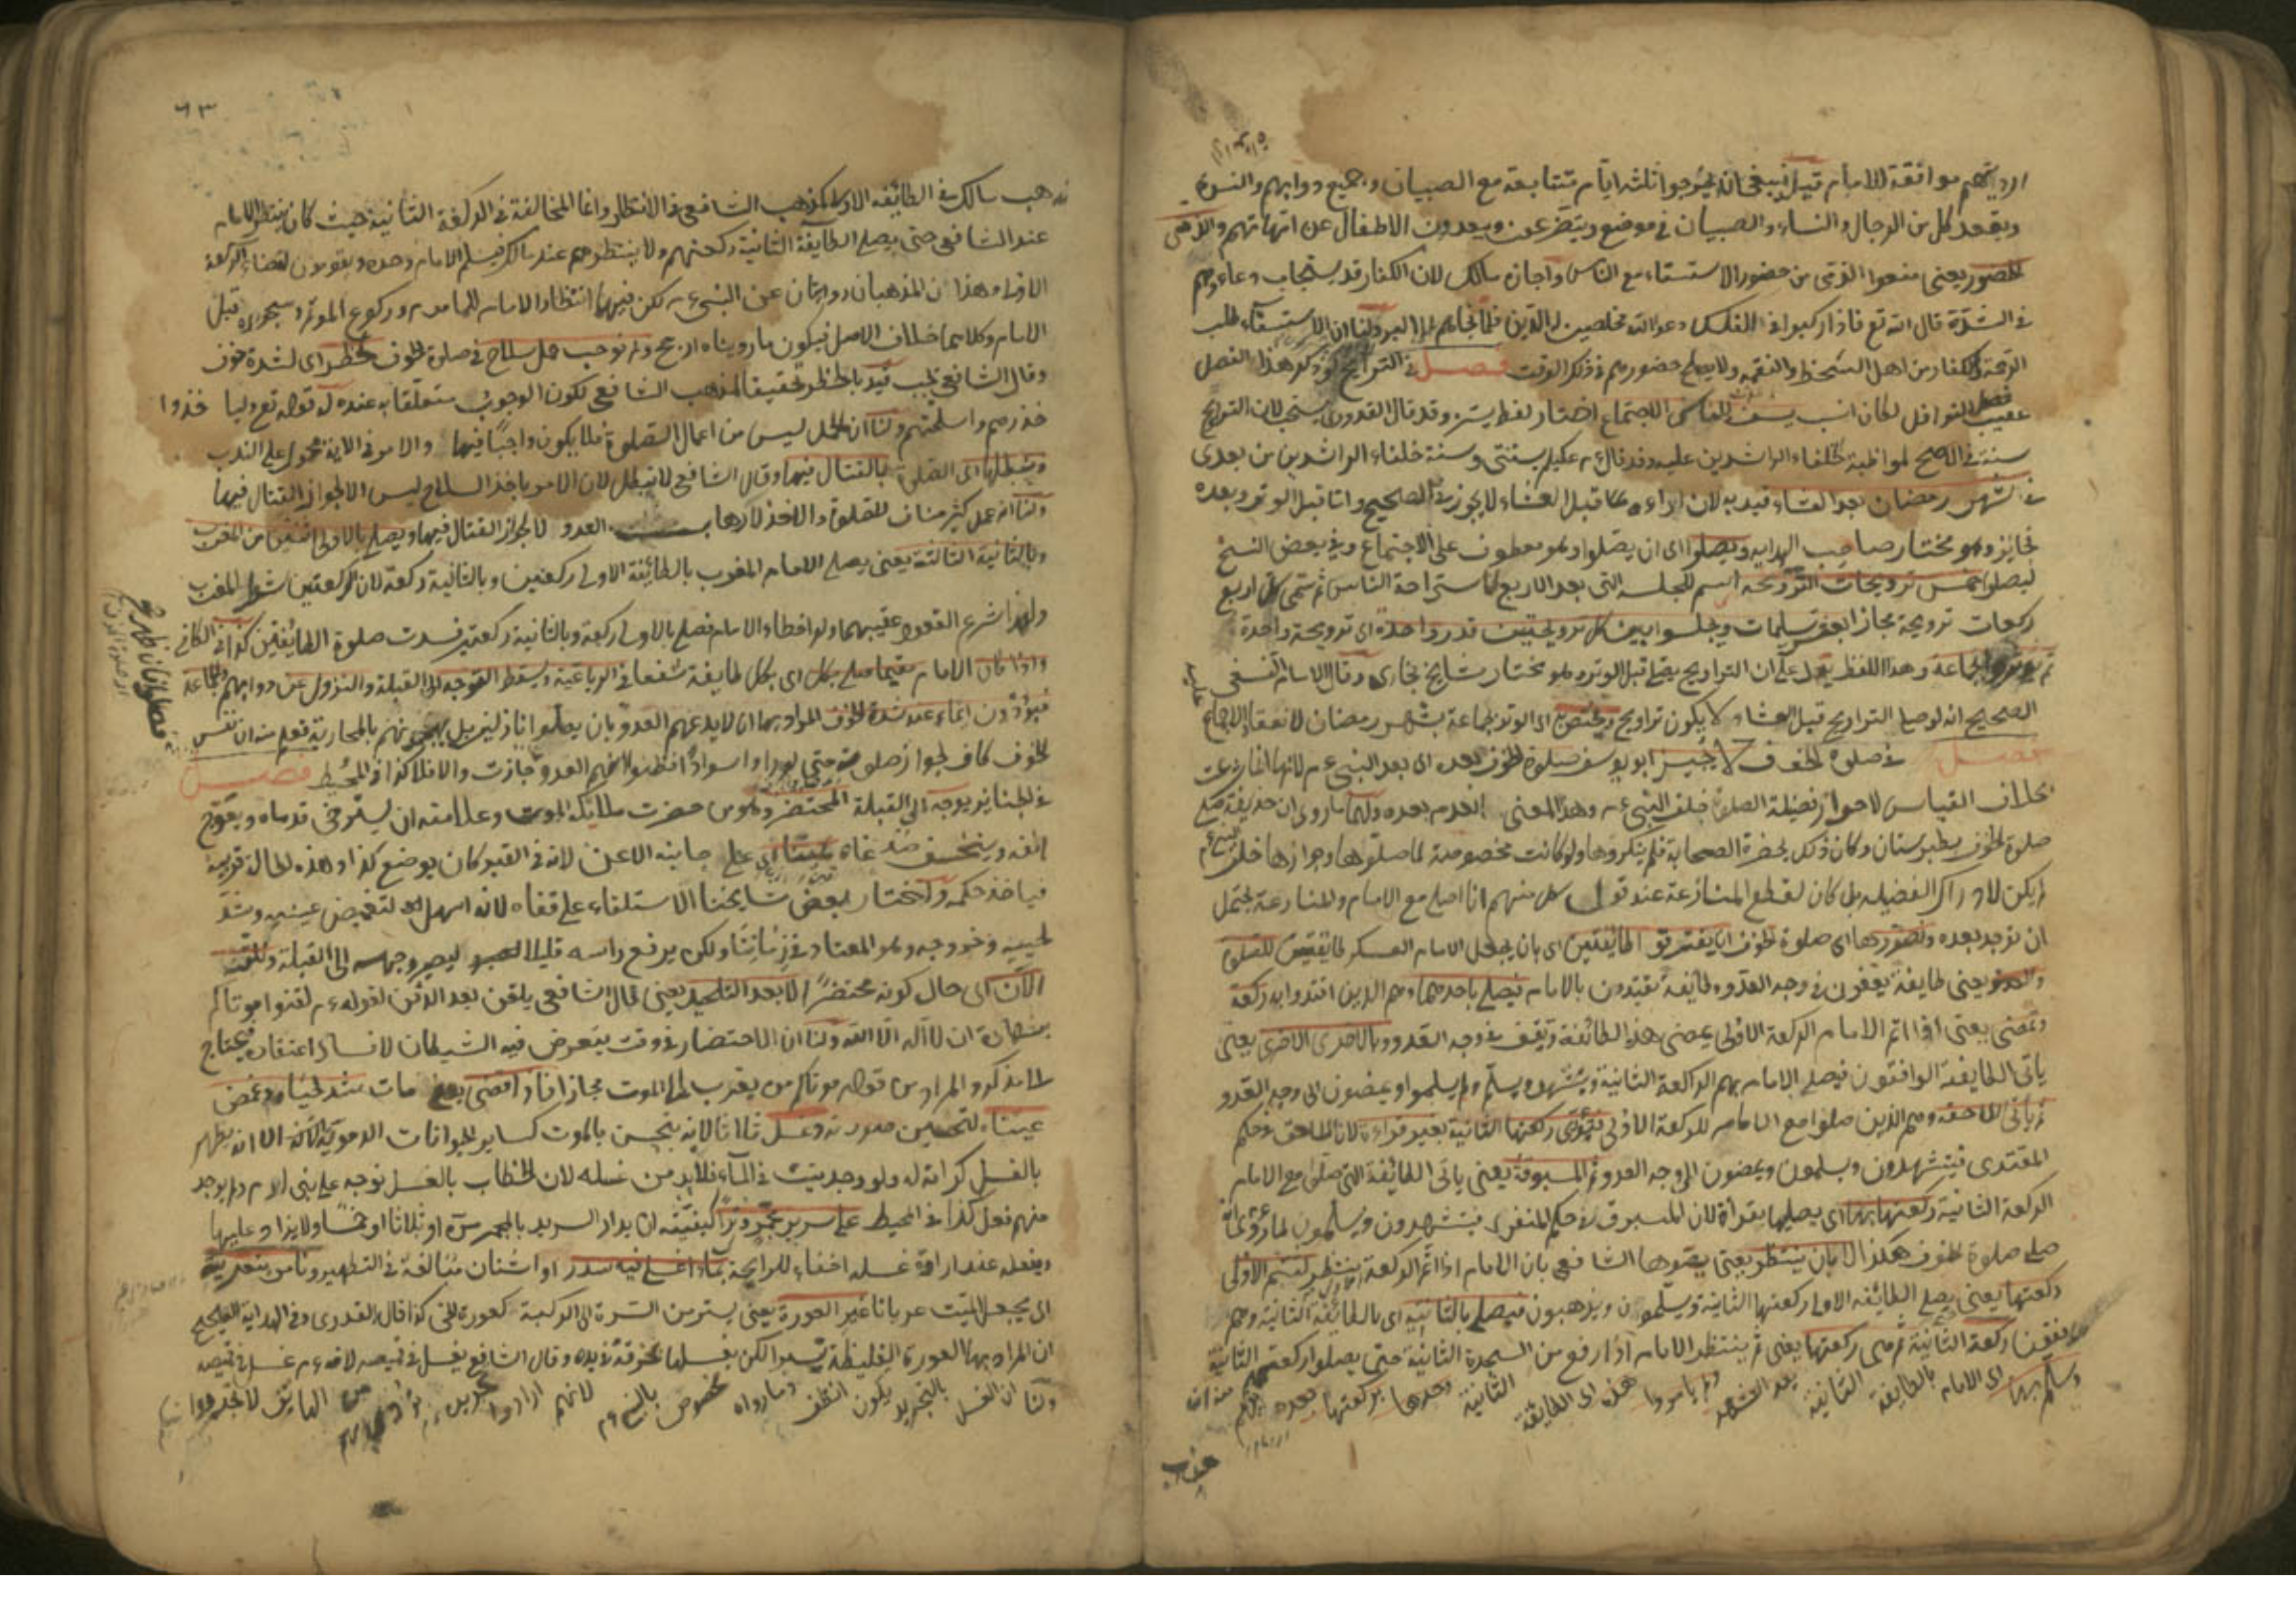 ارديتهم موافقة للامام قيل ينبغي ان يخرجوا ثلثة ايام متتابعة مع الصبيان وجميع دوابهم والنسوة
ويقعد كل من الرجال والنساء والصبيان في موضع ويتضرعون ويبعدون الاطفال عن امهاتهم والذمي
الحضور يعني منعوا الذمي من حضور الاستسقاء مع الناس واجازه مالك لان الكفار قد يستجاب دعاءهم
في الشدة قال الله تع فاذا ركبوا في الفلك دعوا الله مخلصين له الدين فلما نجاهم الى البر ولنا ان الاستسقاء طلب
الرحمة والكفار من اهل السخط والنقمة ولا يصلح حضورهم في ذلك الوقت فصل في التراويح لو ذكر هذا الفصل
عقيب فصل النوافل لكان انسب يسن للناس الاجتماع اختار لفظ يسن وقد قال القدوري يستحب لان التراويح
سنة في الاصح لمواظبة خلفاء الراشدين عليه وقد قال عم عليكم بسنتي وسنة خلفاء الراشدين من بعدي
في شهر رمضان بعد العشاء قيد به لان اداءها قبل العشاء لا يجوز في الصحيح واما قبل الوتر وبعده
فجايز وهو مختار صاحب الهداية ويصلوا اي ان يصلوا وهو معطوف على الاجتماع وفي بعض النسخ
ليصلوا خمس ترويحات الترويحة اسم للجلسة التي بعد الاربع لاستراحة الناس ثم سمى كل اربع
ركعات ترويحة مجازا بعشر تسليمات ويجلسوا بين كل ترويحتين قدر واحدة اي ترويحة واحدة
ثم يوتروا بجماعة وهذا اللفظ يدل على ان التراويح يصلى قبل الوتر وهو مختار مشايخ بخارى وقال الامام النسفي
الصحيح انه لو صلى التراويح قبل العشاء لا يكون تراويح ويختص اي الوتر بجماعة بشهر رمضان لانعقاد الاجماع عليه
فصل في صلوة الخوف لا يجيز ابو يوسف صلوة الخوف بعده اي بعد النبي عم لانها انما شرعت
بخلاف القياس لاحراز فضيلة الصلوة خلف النبي عم وهذا المعنى انعدم بعده ولهما ما روى ان حذيفة صلى
صلوة الخوف بطبرستان وكان ذلك بحضرة الصحابة فلم ينكروها ولو كانت مخصوصة لما صلوها وجوازها خلف النبي عم
لم يكن لادراك الفضيلة بل كان لقطع المنازعة عند قول كل منهم انا اصلي مع الامام والمنازعة يحتمل
ان توجد بعده وتصورها اي صلوة الخوف ان يفترق الطائفتين اي بان يجعل الامام العسكر طايفتين للصلوة
والعدو يعني طايفة يقفون في وجه العدو وطايفة يقتدون بالامام فيصلي باحدهما وهم الذين اقتدوا به ركعة
وتمضي يعني اذا اتم الامام الركعة الاولى يمضي هذه الطائفة وتقف في وجه العدو وبالاخرى الاخرى يعني
ياتي الطايفة الواقفون فيصلي الامام بهم الركعة الثانية ويتشهد ويسلم ولم يسلموا ويمضون الى وجه العدو
ثم ياتي اللاحقة وهم الذين صلوا مع الامام للركعة الاولى فتؤدي ركعتها الثانية بغير قراءة لان اللاحق في حكم
المقتدي فيتشهدون ويسلمون ويمضون الى وجه العدو ثم المسبوقة يعني ياتي الطائفة التي صلى مع الامام
الركعة الثانية ركعتها بها اي يصليها بقراءة لان المسبوق في حكم المنفرد فيتشهدون ويسلمون لما روى انه عم
صلى صلوة الخوف هكذا لا بان ينتظر يعني يصورها الشافعي بان الامام اذا اتم الركعة الاولى ينتظر لتتم الاولى
ركعتها يعني يصلي الطائفة الاولى ركعتها الثانية ويسلمون ويذهبون فيصلي بالثانية اي بالطائفة الثانية وهم
واقفين ركعة الثانية ثم حتى ركعتها يعني ثم ينتظر الامام اذا رفع من السجدة الثانية حتى يصلوا ركعتهم الثانية
وسلم بها اي الامام بالطايفة الثانية بعد التشهد ولم يامروا هذه اي الطايفة الثانية وحدها بركعتها بعده
ذهب
٦٣
ذهب مالك في الطائفة الاولى كمذهب الشافعي في الانتظار وانما المخالفة في الركعة الثانية حيث كان ينتظر الامام
عند الشافعي حتى يصلي الطايفة الثانية ركعتهم ولا ينتظرهم عند مالك فيسلم الامام وحده ويقومون لقضاء الركعة
الاولى وهذان المذهبان روايتان عن النبي عم لكن فيهما انتظار الامام للماموم وركوع المؤتم وسجوده قبل
الامام وكلاهما خلاف الاصل فيكون ما رويناه ارجح ولم نوجب حمل سلاح في صلوة الخوف لخطر اي لشدة خوف
وقال الشافعي يجب قيد بالخطر تحقيقا لمذهب الشافعي لكون الوجوب متعلقا به عنده له قوله تع وليا خذوا
حذرهم واسلحتهم ولنا ان الحمل ليس من اعمال الصلوة فلا يكون واجبا فيها والامر في الاية محمول على الندب
ونبطلها اي الصلوة بالقتال فيها وقال الشافعي لا تبطل لان الامر باخذ السلاح ليس الا لجواز القتال فيها
ولنا انه عمل كثير مناف للصلوة والاخذ لارهاب العدو لا لجواز القتال فيها ويصلي بالاولى اثنتين من المغرب
وبالثانية الثالثة يعني يصلي الامام المغرب بالطائفة الاولى ركعتين وبالثانية ركعة لان الركعتين شطر المغرب
ولهذا شرع القعود عقيبهما ولو اخطاء الامام فصلى بالاولى ركعة وبالثانية ركعتين فسدت صلوة الطائفتين كذا في الكافي
واذا كان الامام مقيما صلى بكل اي بكل طايفة شفعا في الرباعية ويسقط التوجه الى القبلة والنزول عن دوابهم والجماعة
فيؤدون ايماء عند شدة الخوف المراد بها ان لا يدعهم العدو بان يصلوا نازلين بل يهجمونهم بالمحاربة فعلم منه ان نفس
الخوف كاف لجواز صلوته حتى لو راوا سوادا فظنوا انهم العدو جازت والا فلا كذا في المحيط فصل
في الجنايز يوجه الى القبلة المحتضر وهو من حضرت ملائكة الموت وعلامته ان يسترخي قدماه ويعوج
انفه وينخسف صدغاه يمينا اي على جانبه الايمن لانه في القبر كان يوضع كذا وهذه الحالة قريبة
فياخذ حكمه واختار بعض مشايخنا الاستلقاء على قفاه لانه اسهل لتغميض عينيه وشد
لحييه وخروجه وهو المعتاد في زماننا ولكن يرفع راسه قليلا ليصير وجهه الى القبلة ونلقنه
الآن اي حال كونه محتضرا لا بعد التلحيد يعني قال الشافعي يلقن بعد الدفن لقوله عم لقنوا موتاكم
بشهادة ان لا اله الا الله ولنا ان الاحتضار في وقت يتعرض فيه الشيطان لافساد اعتقاده فيحتاج
لا مذكر والمراد من قوله موتاكم من يقرب الى الموت مجازا فاذا قضى يعني مات شد لحياه وغمض
عيناه لتحسين صورته وغسل ثلاثا لانه يتنجس بالموت كساير الحيوانات الدموية الا انه يطهر
بالغسل كرامة له ولو وجد ميت في الماء فلا بد من غسله لان الخطاب بالغسل توجه على بني ادم ولم يوجد
منهم فعل كذا في المحيط على سرير مجمر وترا كيفيته ان يدار السرير بالمجمر مرة او ثلاثا او خمسا ولا يزاد عليها
ويفعله عند ارادة غسله اخفاء للرايحة بماء اغلي فيه سدر او اشنان مبالغة في التطهير ونامر بتجريده
اي يجعل الميت عريانا غير العورة يعني يستر من السرة الى الركبة كعورة الحي كذا قال القدوري وفي الهداية الصحيح
ان المراد بها العورة الغليظة تيسيرا لكن يغسلها بخرقة في يده وقال الشافعي يغسل في قميصه لانه عم غسل في قميصه
ولنا ان الغسل بالتجريد يكون انظف وما رواه مخصوص بالنبي عم لانهم ارادوا تجريده عم